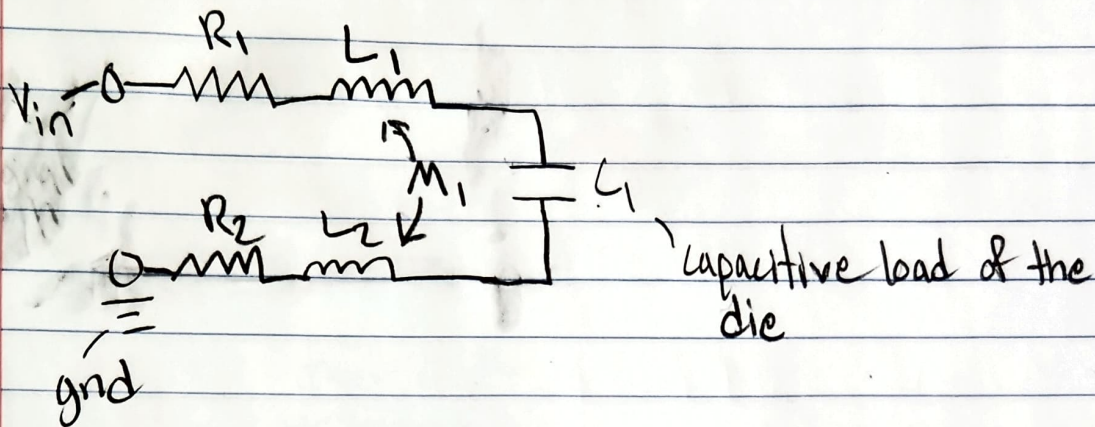 R1 L1
Vin
M1
C1
R2 L2
capacitive load of the
die
gnd